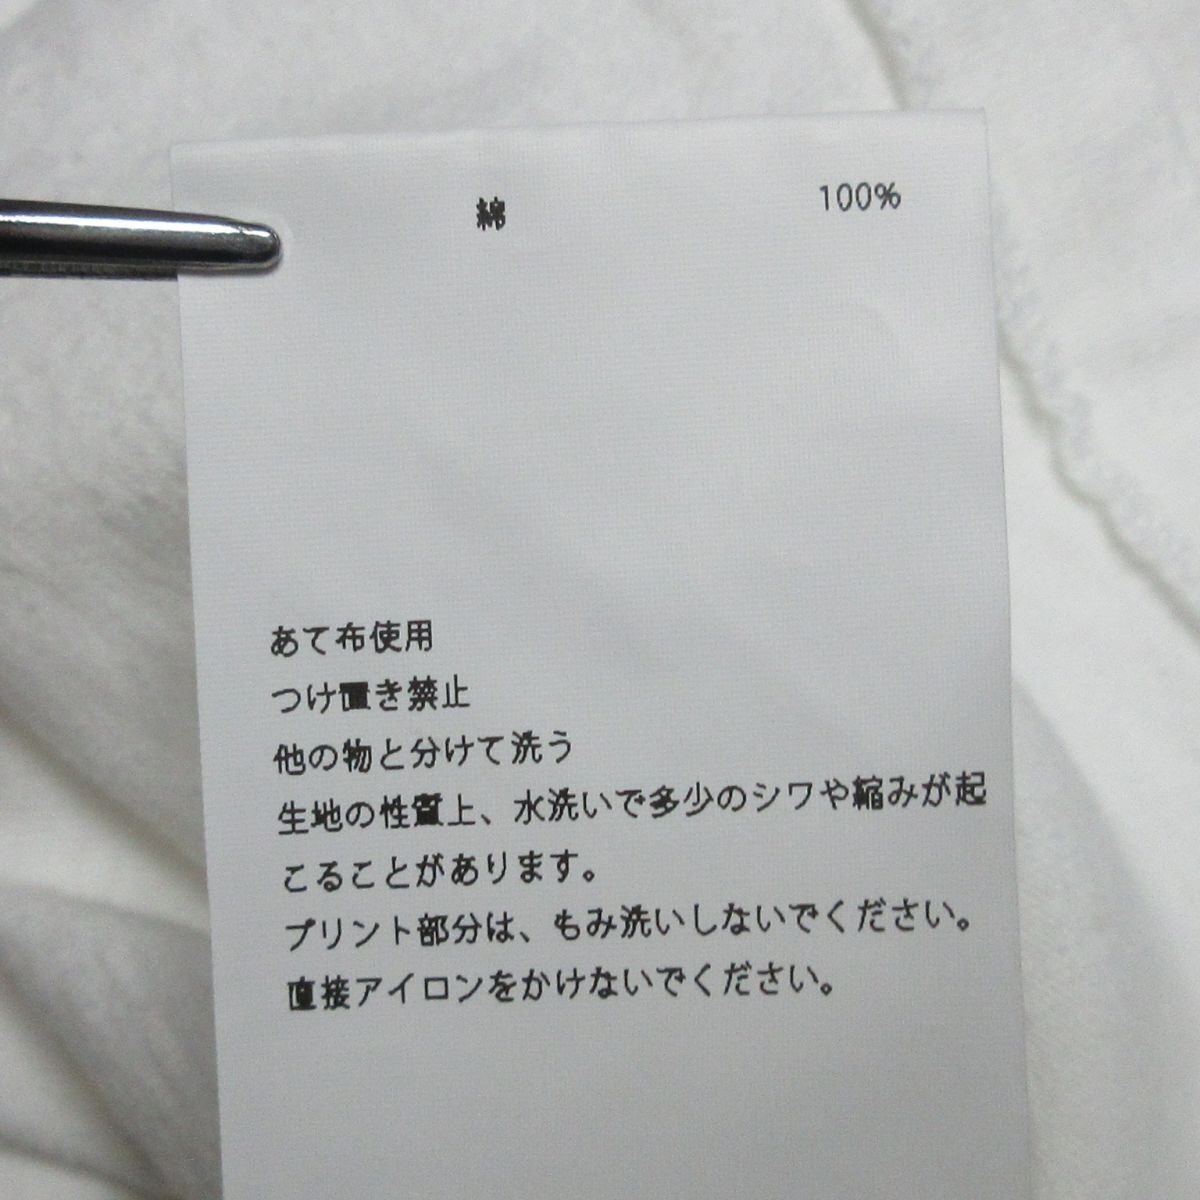 綿 100%
あて布使用
つけ置き禁止
他の物と分けて洗う
生地の性質上、水洗いで多少のシワや縮みが起
こることがあります。
プリント部分は、もみ洗いしないでください。
直接アイロンをかけないでください。